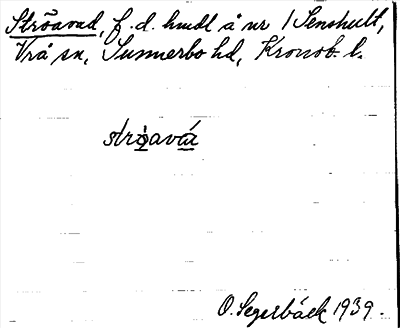 Ströavad, f.d. hmdl å nr 1 Senshult,
Vrå sn, Sunnerbo hd, Kronob. l.
strøavá
O. Segerbäck 1939.